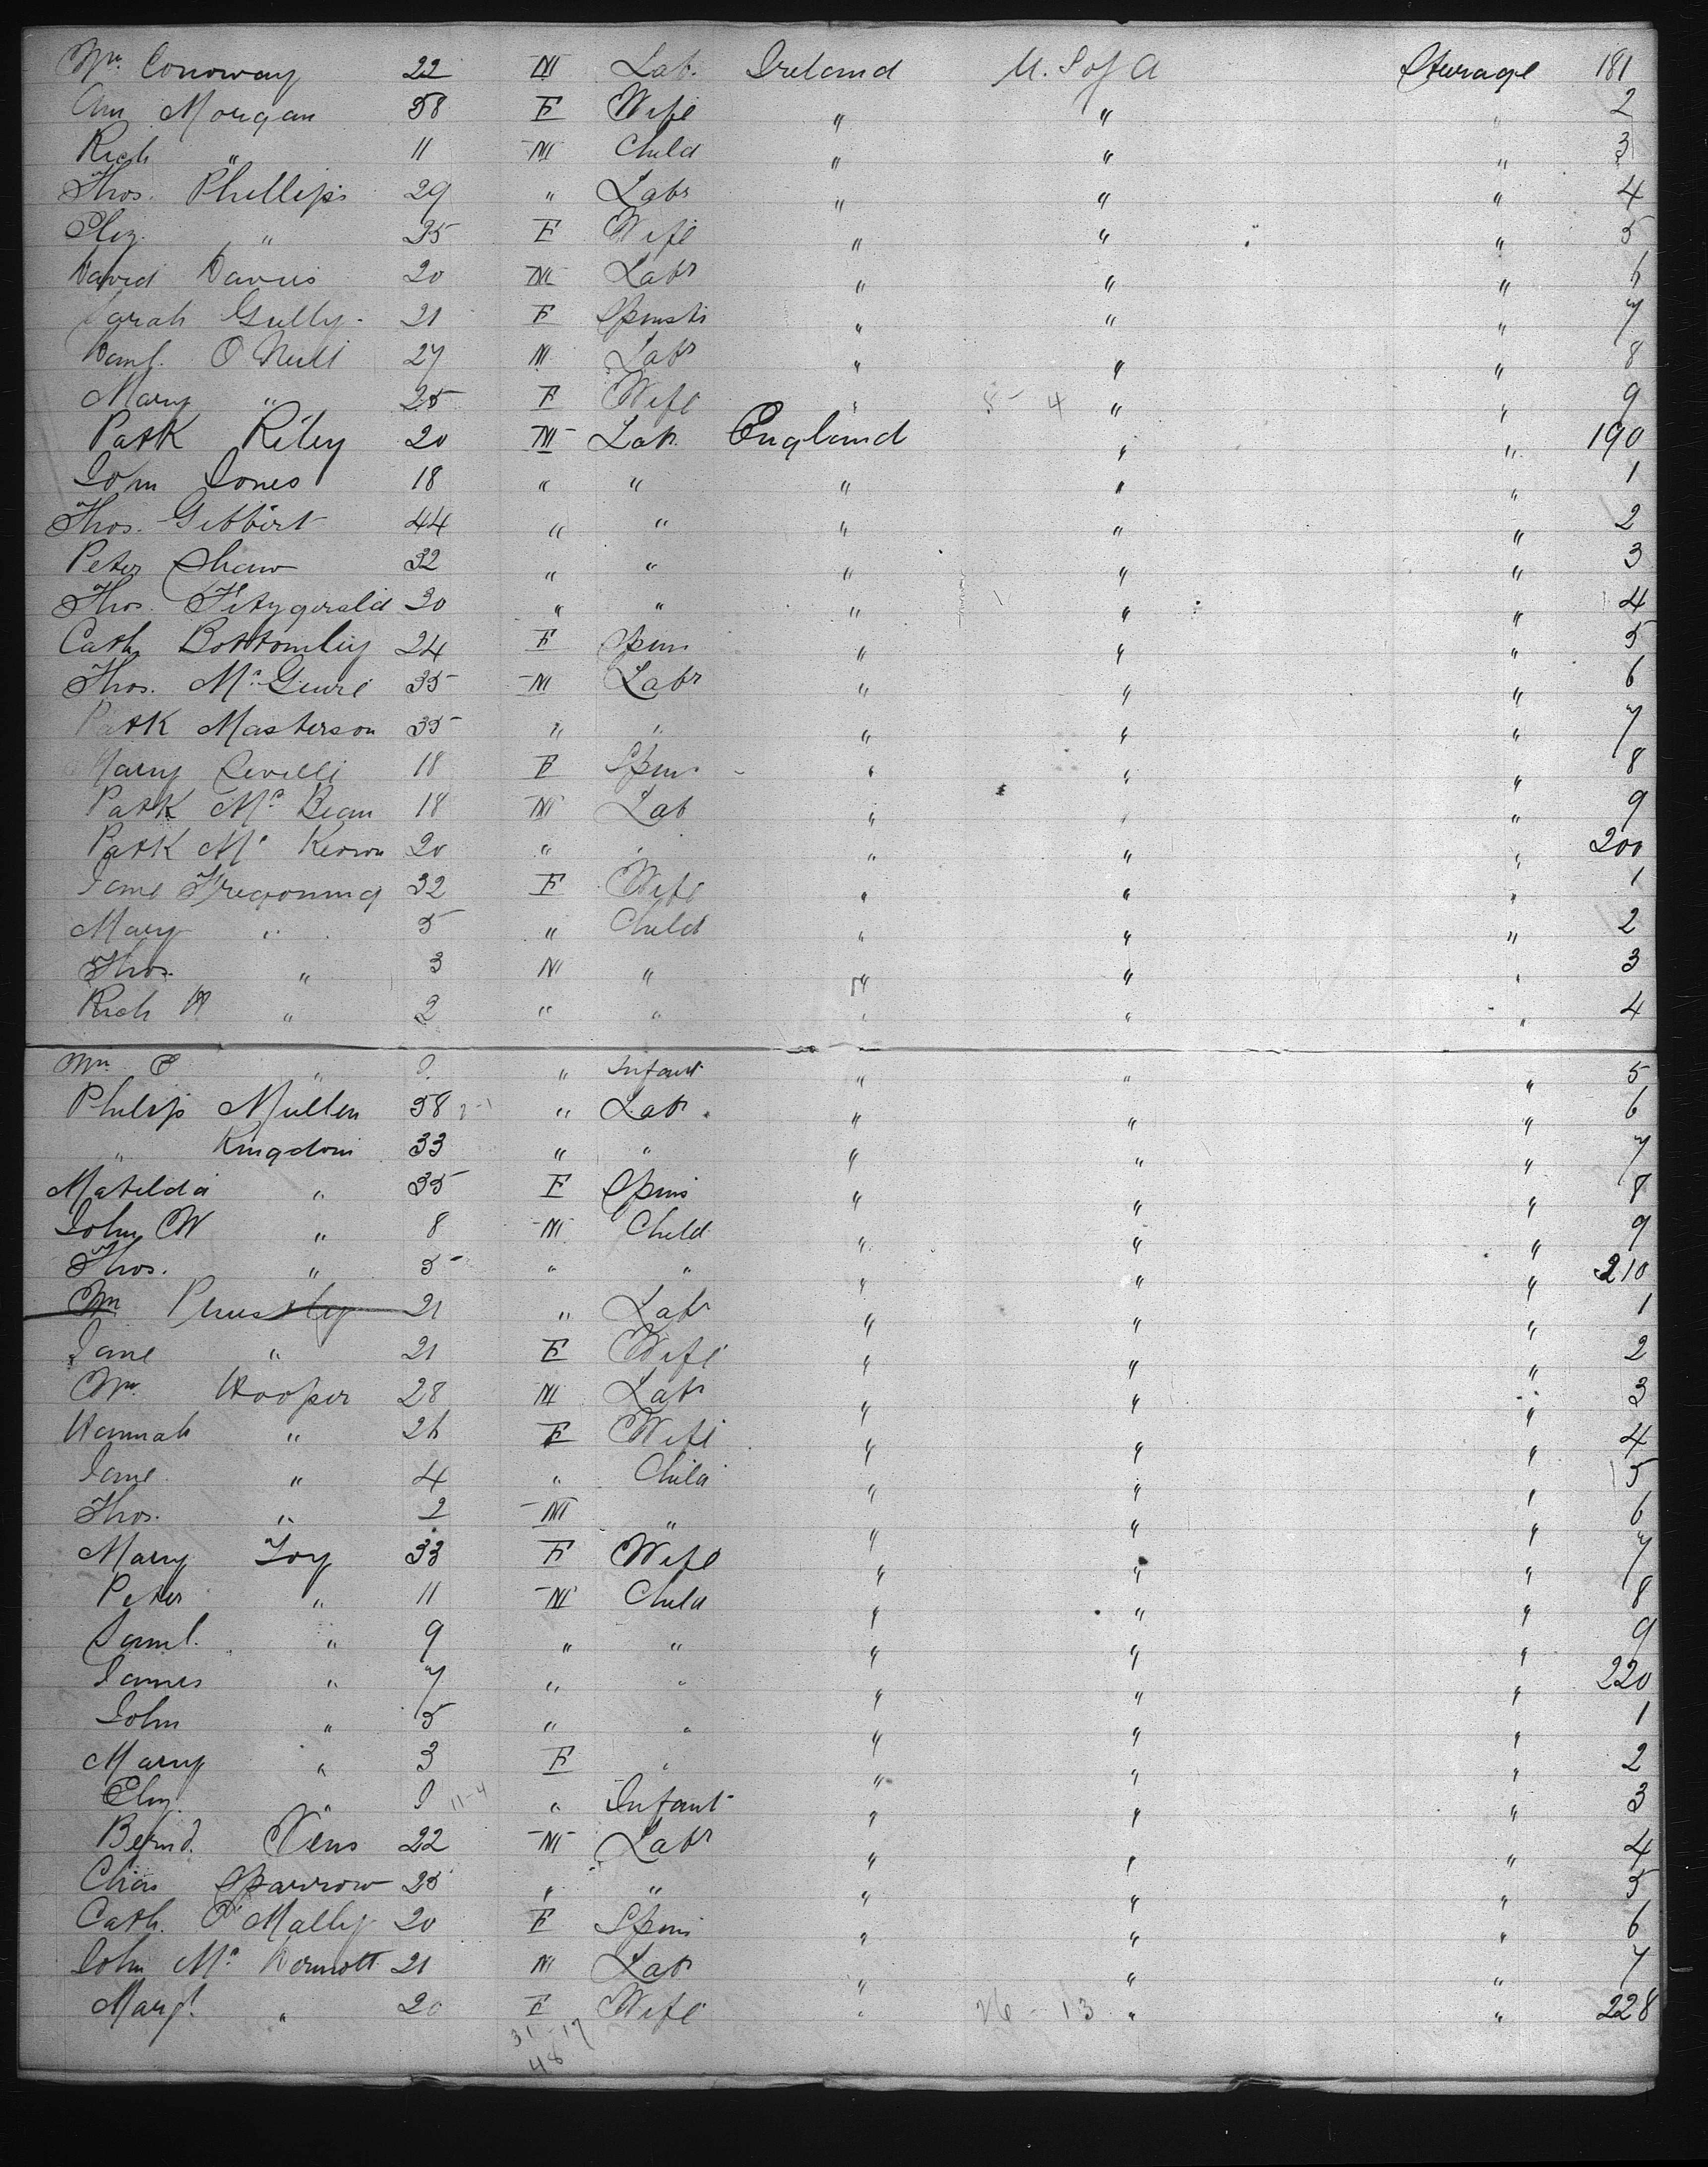 Wm. Conoway 22 M Lab. Ireland U. S of A Sterage 181
Ann Morgan 38 F Wife " " " 2
Rich " 11 M Child " " " 3
Thos. Phillips 29 " Labr " " " 4
Eliz. " 35 F Wife " " " 5
David Davis 20 M Labr " " " 6
Sarah Gully 21 F Spinstr " " " 7
Danl. O Neill 27 M Labr " " " 8
Mary " 25 F Wife " 5 - 4 " " 9
Patk Riley 20 M Lab. England " " 190
John Jones 18 " " " " " 1
Thos. Gibbert 44 " " " " " 2
Peter Shaw 32 " " " " " 3
Thos. Fitzgerald 30 " " " " " 4
Cath Bottomley 24 F Spin " " " 5
Thos. Mc Guire 35 M Labr " " " 6
Patk Masterson 35 " " " " " 7
Mary 18 F Spin " " " 8
Patk Mc Bean 18 M Lab " " " 9
Patk Mc Keown 20 " " " " " 200
Jane Tregoning 32 F Wife " " " 1
Mary " 5 " Child " " " 2
Thos. " 3 M " " " " 3
Rich H " 2 " " " " " 4
Wm E " 0 " Infant " " " 5
Philip Mullen 38 2-1 " Lab. " " " 6
" Kingdom 33 " " " " " 7
Matilda " 35 F Spins " " " 8
John W " 8 M Child " " " 9
Thos. " 5 " " " " " 210
Wm 21 " Labr " " " 1
Jane " 21 F Wife " " " 2
Wm. Hooper 28 M Labr " " " 3
Hannah " 26 F Wife " " " 4
Jane " 4 " Child " " " 5
Thos. " 2 M " " " " 6
Mary Toy 33 F Wife " " " 7
Peter " 11 M Child " " " 8
Saml. " 9 " " " " " 9
James " 7 " " " " " 220
John " 5 " " " " " 1
Mary " 3 F " " " " 2
Eliz. " 0 11-4 " Infant " " " 3
Bernd. 22 M Labr " " " 4
Chas Sparrow 25 " " " " " 5
Cath. O'Mally 20 F Spins " " " 6
John Mc Dermott 21 M Lab " " " 7
Margt. " 20 F Wife " 26 - 13 " " 228
31 - 17
48